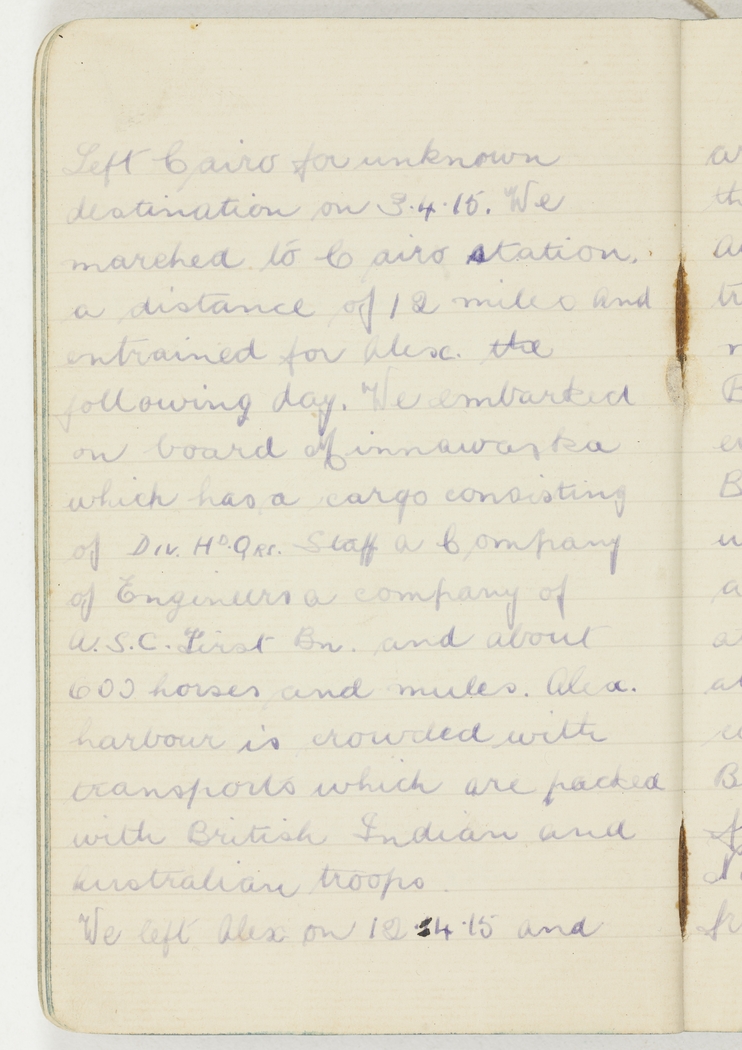 Left Cairo for unknown
destination on 3.4.15. We
marched to Cairo station,
a distance of 12 miles and
entrained for Alex. the
following day. We embarked
on board Minnawaska
which has a cargo consisting
of Div. Hd. Qrs. Staff a Company
of Engineers a company of
A.S.C. First Bn. and about
600 horses and mules. Alex.
harbour is crowded with
transports which are packed
with British Indian and
Australian troops.
We left Alex on 12.4.15 and